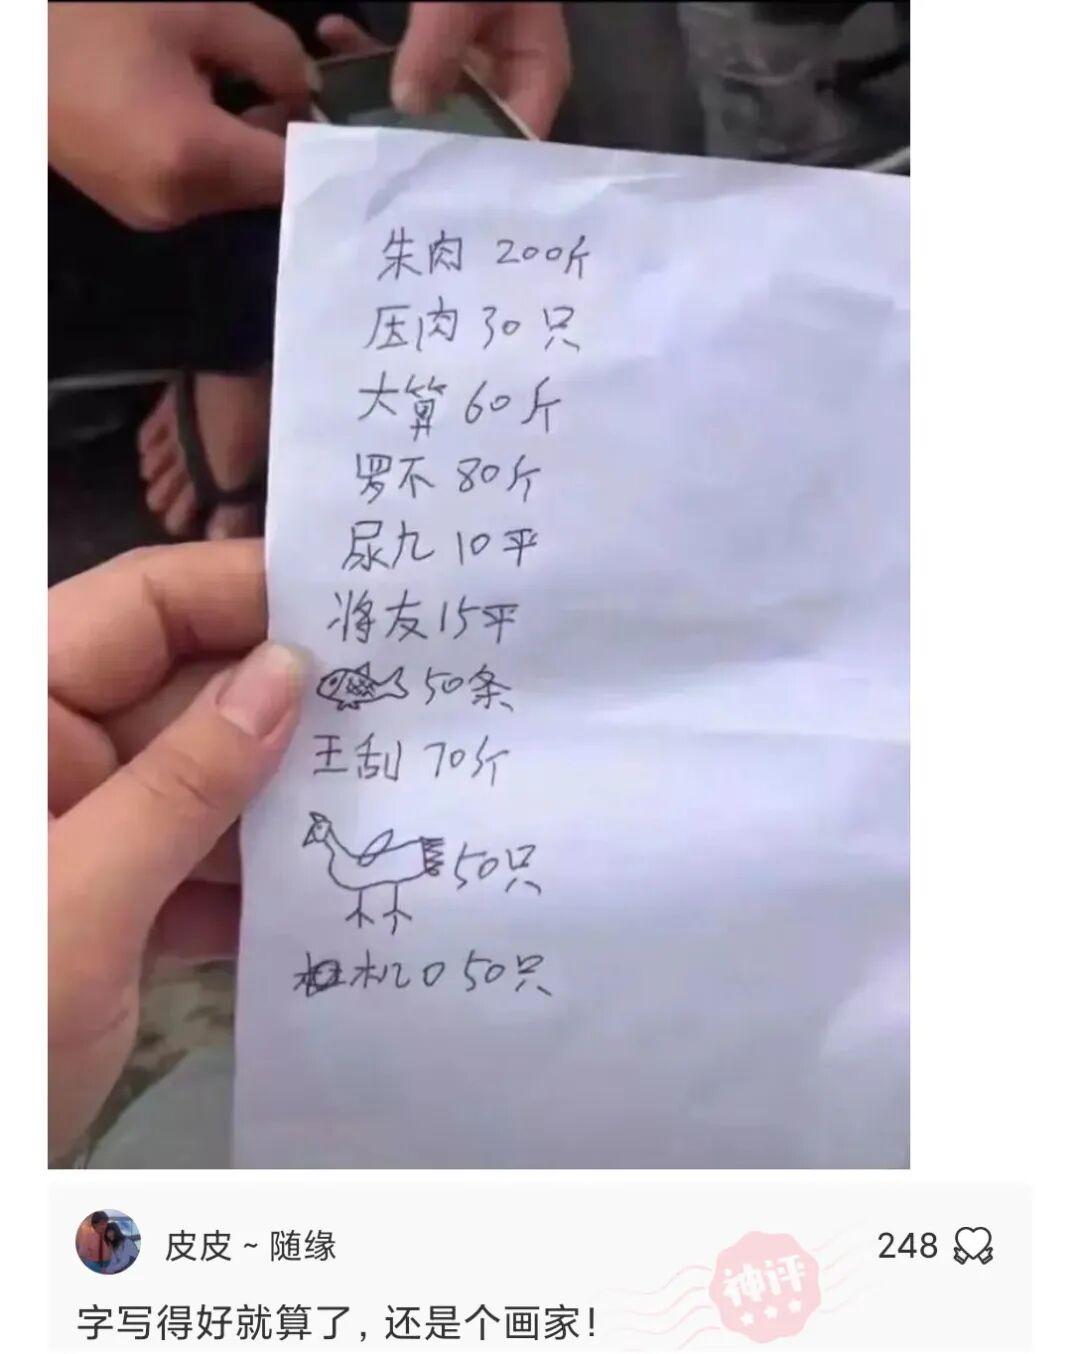 朱肉 200斤
压肉 30只
大算 60斤
罗不 80斤
尿九 10平
将友 15平
50条
王刮 70斤
50只
机 0 50只
皮皮 ~ 随缘
248
神评
字写得好就算了, 还是个画家!